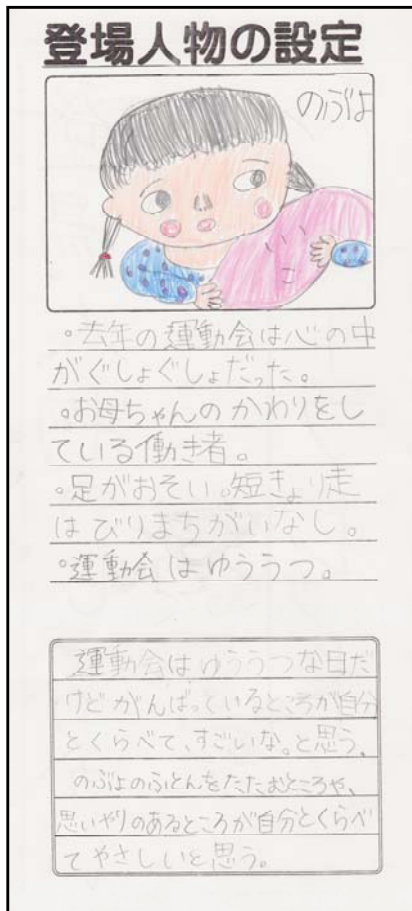 登場人物の設定
のぶよ
。去年の運動会は心の中
がぐしょぐしょだった。
。お母ちゃんのかわりをし
ている働き者。
。足がおそい。短きょり走
はびりまちがいなし。
。運動会はゆううつ。
運動会はゆううつな日だ
けどがんばっているところが自分
とくらべて、すごいな。と思う、
のぶよのふとんをたたむところや、
思いやりのあるところが自分とくらべ
てやさしいと思う。